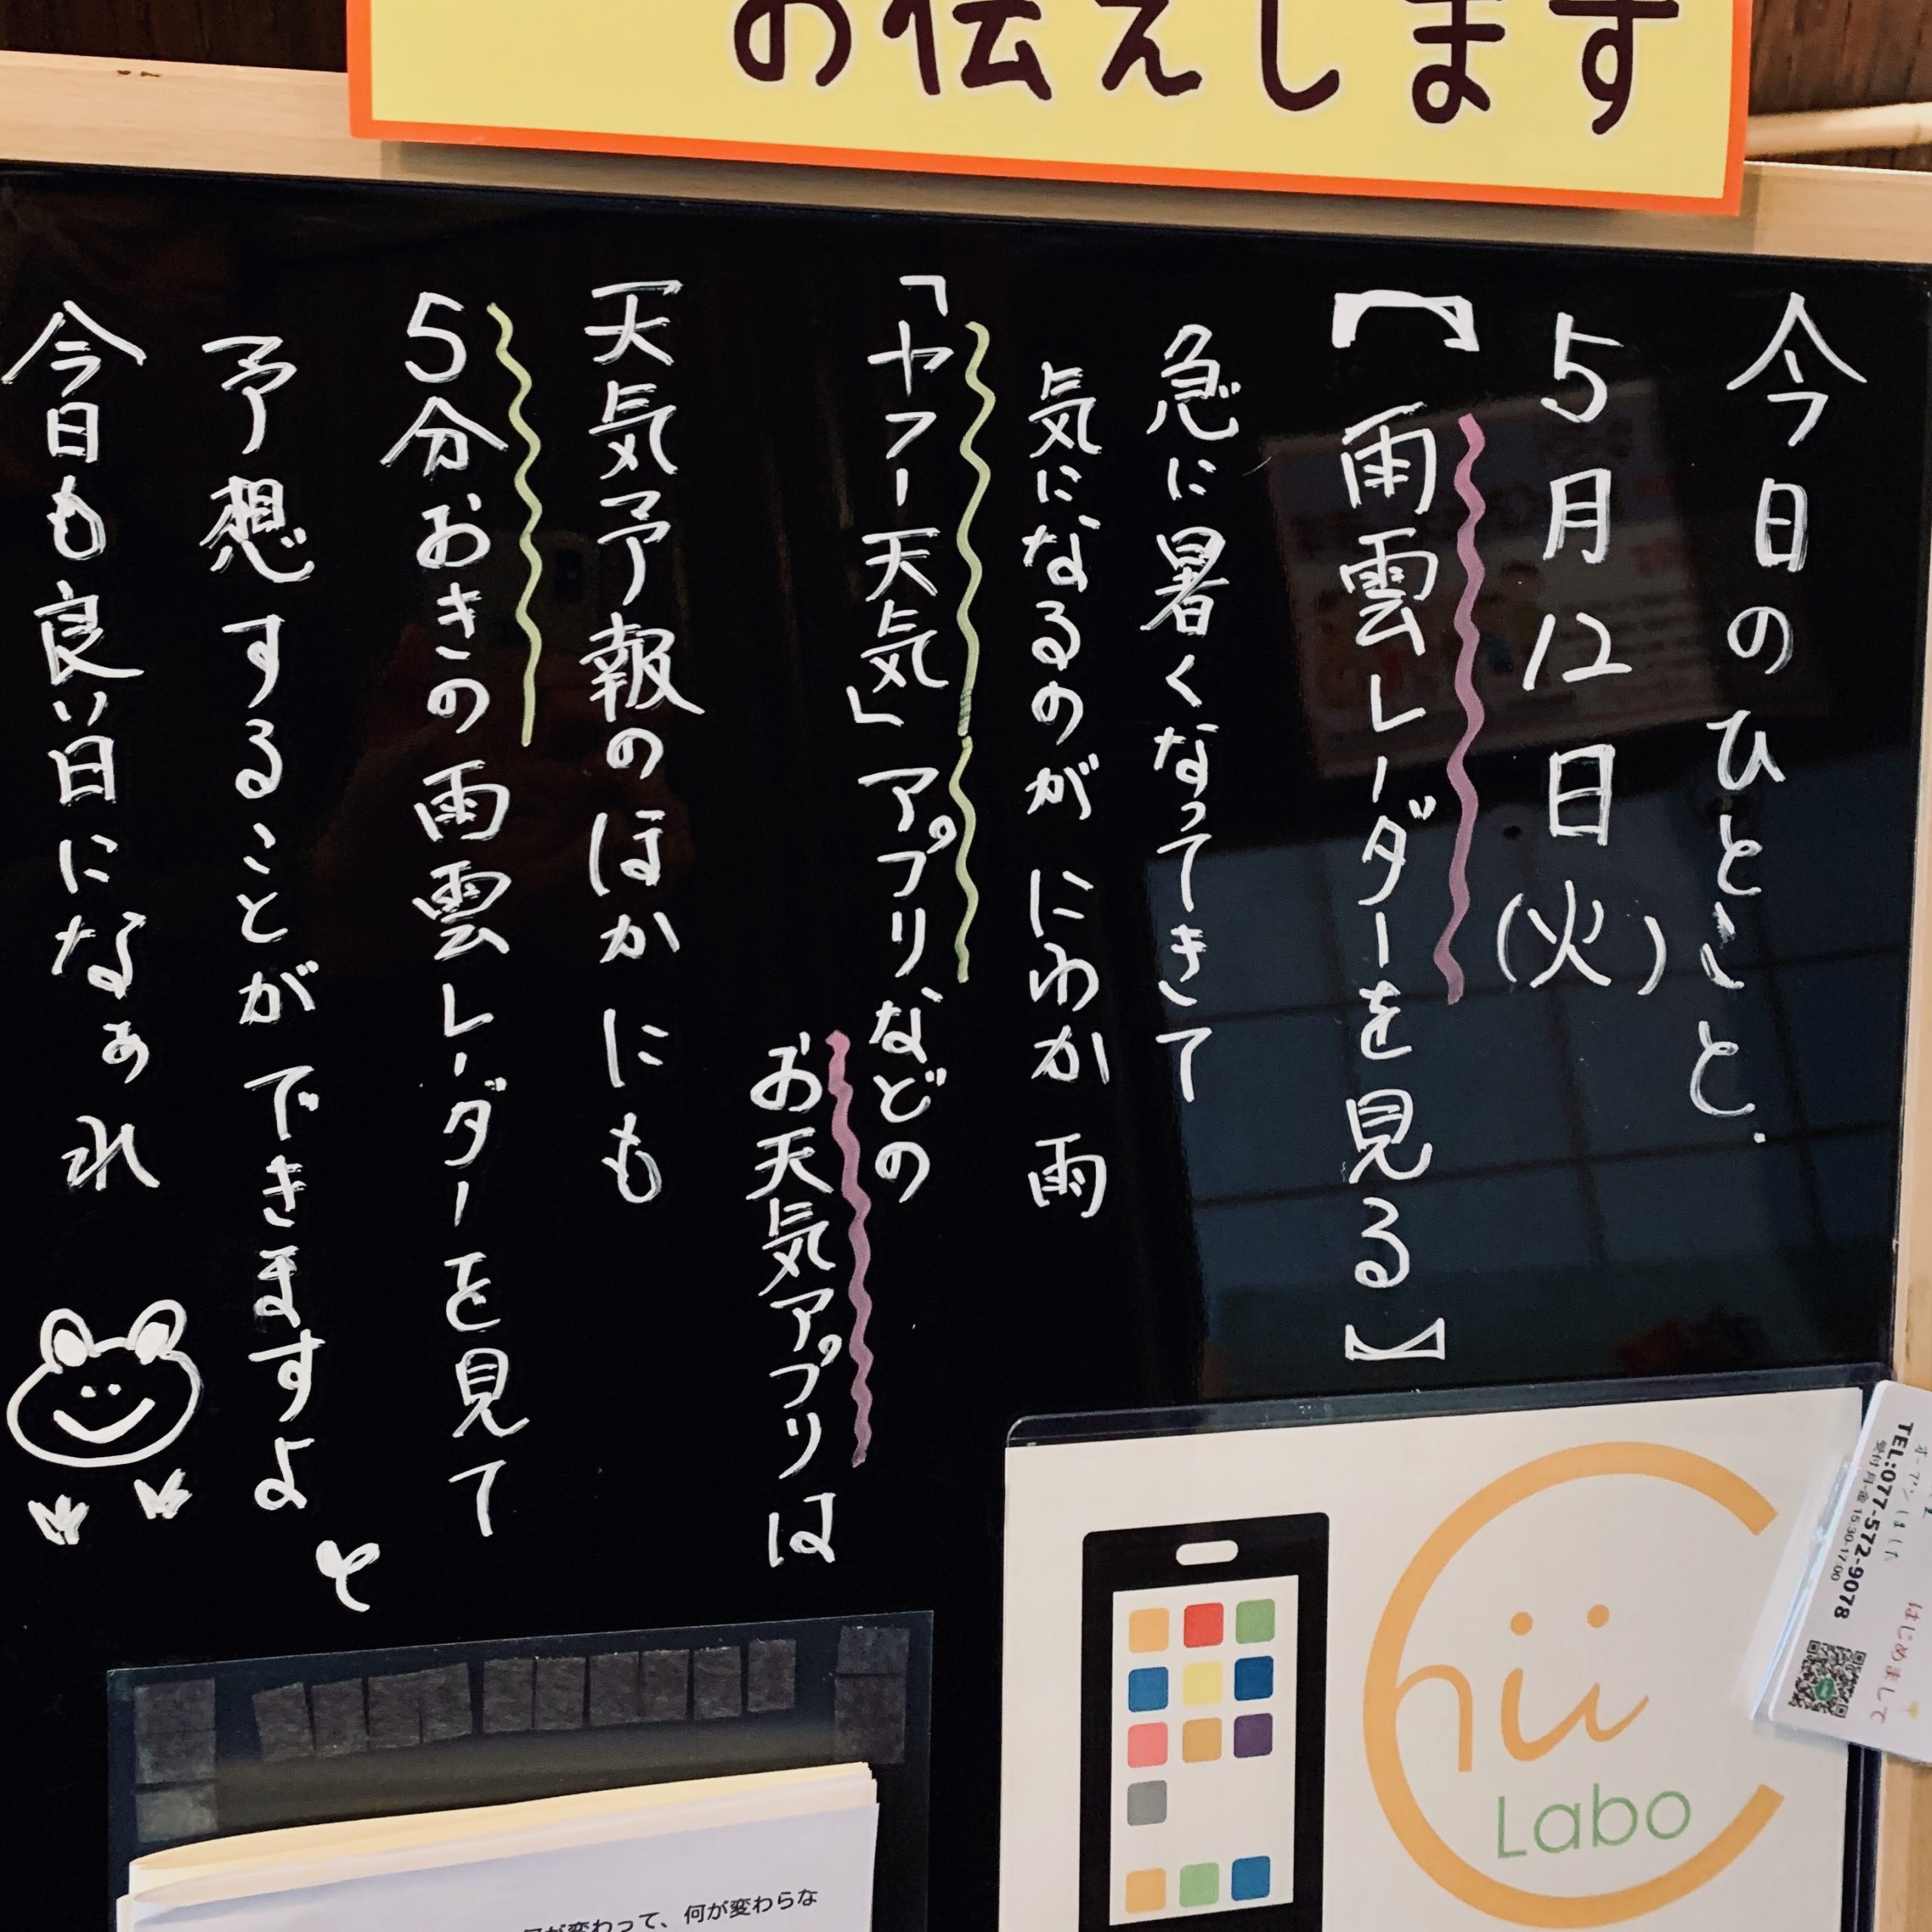 お伝えします
今日のひとこと.
5月12日(火)
【雨雲レーダーを見る】
急に暑くなってきて
気になるのがにわか雨
「ヤフー天気」アプリなどの
お天気アプリは
天気予報のほかにも
5分おきの雨雲レーダーを見て
予想することができますよ
今日も良い日になぁれ
Chii
Labo
TEL:077-572-9078
受付 月-金 15:30-17:00
はじめまして
何が変わって、何が変わらな